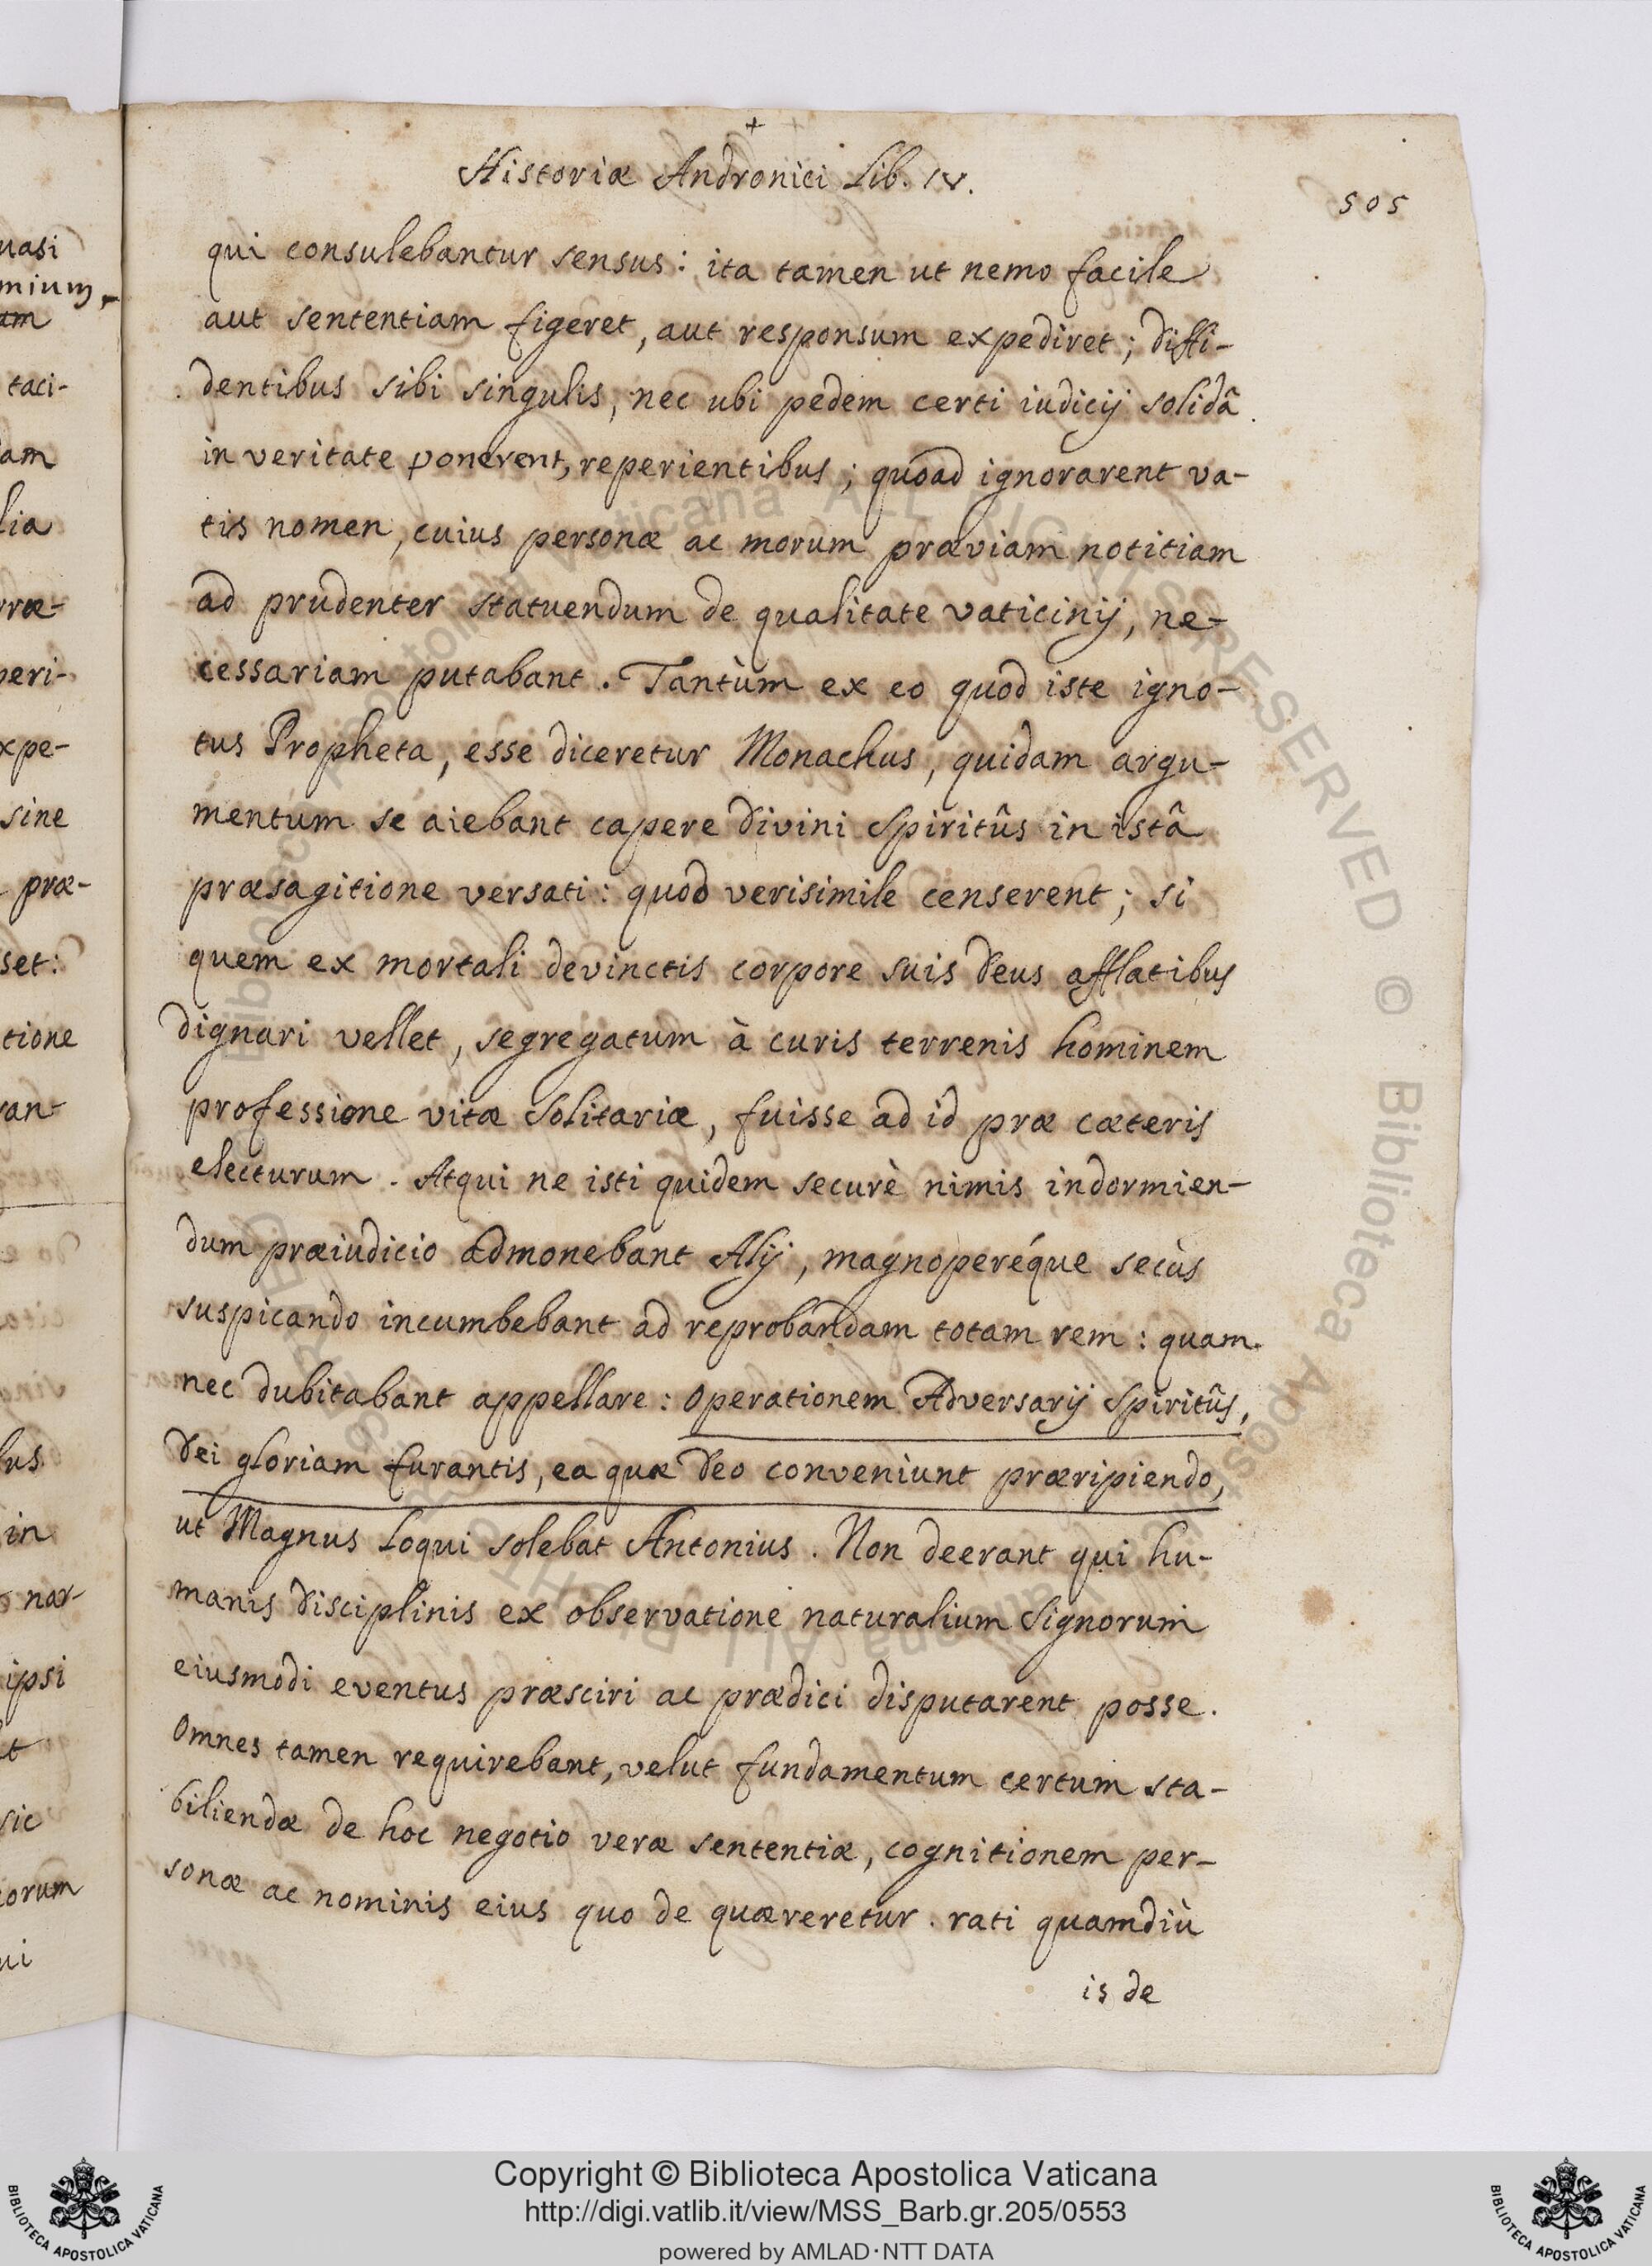 +
Historiæ Andronici Lib. IV.
505
qui consulebantur sensus: ita tamen ut nemo facile
aut sententiam figeret, aut responsum expediret; diffi-
dentibus sibi singulis, nec ubi pedem certi iudicij solidâ
in veritate ponerent, reperientibus; quoad ignorarent va-
tis nomen, cuius personæ ac morum præviam notitiam
ad prudenter statuendum de qualitate vaticinij, ne-
cessariam putabant. Tantùm ex eo quod iste igno-
tus Propheta, esse diceretur Monachus, quidam argu-
mentum se aiebant capere divini Spiritûs in istâ
præsagitione versati: quod verisimile censerent; si
quem ex mortali devinctis corpore suis Deus afflatibus
dignari vellet, segregatum à curis terrenis hominem
professione vitæ solitariæ, fuisse ad id præ cæteris
electurum. Atqui ne isti quidem securè nimis indormien-
dum præiudicio admonebant Alij, magnoperéque secùs
suspicando incumbebant ad reprobandam totam rem: quam
nec dubitabant appellare: Operationem Adversarij Spiritûs,
Dei gloriam furantis, ea quæ Deo conveniunt præripiendo,
ut Magnus loqui solebat Antonius. Non deerant qui hu-
manis disciplinis ex observatione naturalium signorum
eiusmodi eventus præsciri ac prædici disputarent posse.
Omnes tamen requirebant, velut fundamentum certum sta-
biliendæ de hoc negotio veræ sententiæ, cognitionem per-
sonæ ac nominis eius quo de quæreretur. rati quamdiù
is de
uasi
mium,
am
taci-
dam
lia
rræ-
peri-
xpe-
sine
præ-
set:
tione
an-
lus
in
nar-
ipsi
t
sic
corum
ui
Copyright © Biblioteca Apostolica Vaticana
http://digi.vatlib.it/view/MSS_Barb.gr.205/0553
powered by AMLAD·NTT DATA
BIBLIOTECA APOSTOLICA VATICANA
BIBLIOTECA APOSTOLICA VATICANA